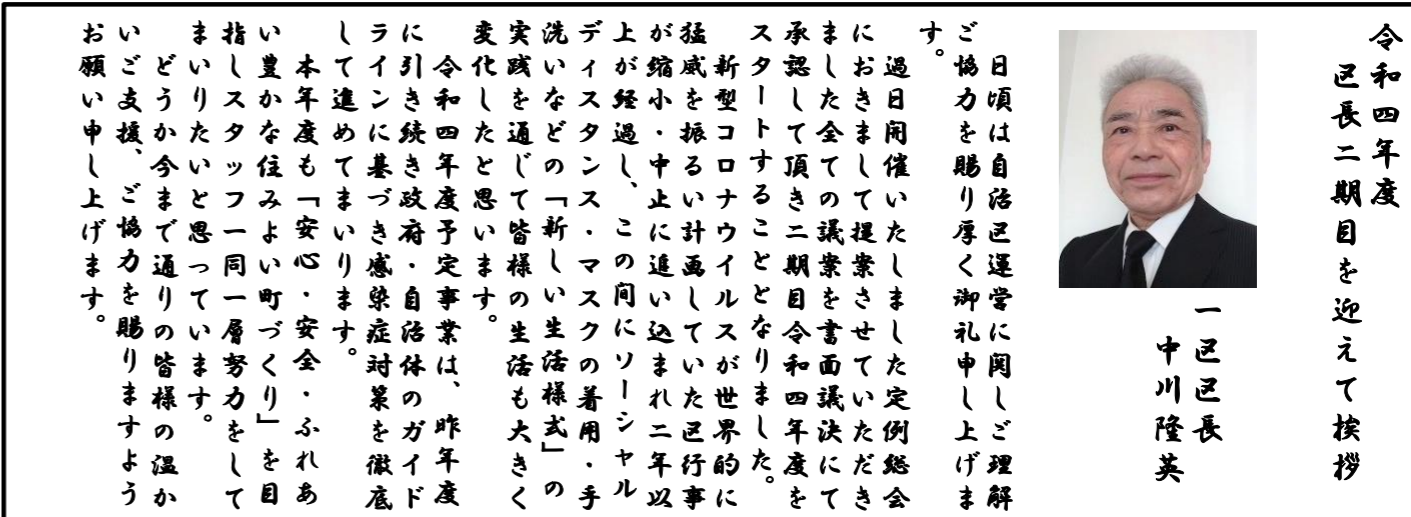 令和四年度
区長二期目を迎えて挨拶
一区区長
中川隆英
日頃は自治区運営に関しご理解
ご協力を賜り厚く御礼申し上げま
す。
過日開催いたしました定例総会
におきまして提案させていただき
ました全ての議案を書面議決にて
承認して頂き二期目令和四年度を
スタートすることとなりました。
新型コロナウイルスが世界的に
猛威を振るい計画していた区行事
が縮小・中止に追い込まれ二年以
上が経過し、この間にソーシャル
ディスタンス・マスクの着用・手
洗いなどの「新しい生活様式」の
実践を通じて皆様の生活も大きく
変化したと思います。
令和四年度予定事業は、昨年度
に引き続き政府・自治体のガイド
ラインに基づき感染症対策を徹底
して進めてまいります。
本年度も「安心・安全・ふれあ
い豊かな住みよい町づくり」を目
指しスタッフ一同一層努力をして
まいりたいと思っています。
どうか今まで通りの皆様の温か
いご支援、ご協力を賜りますよう
お願い申し上げます。